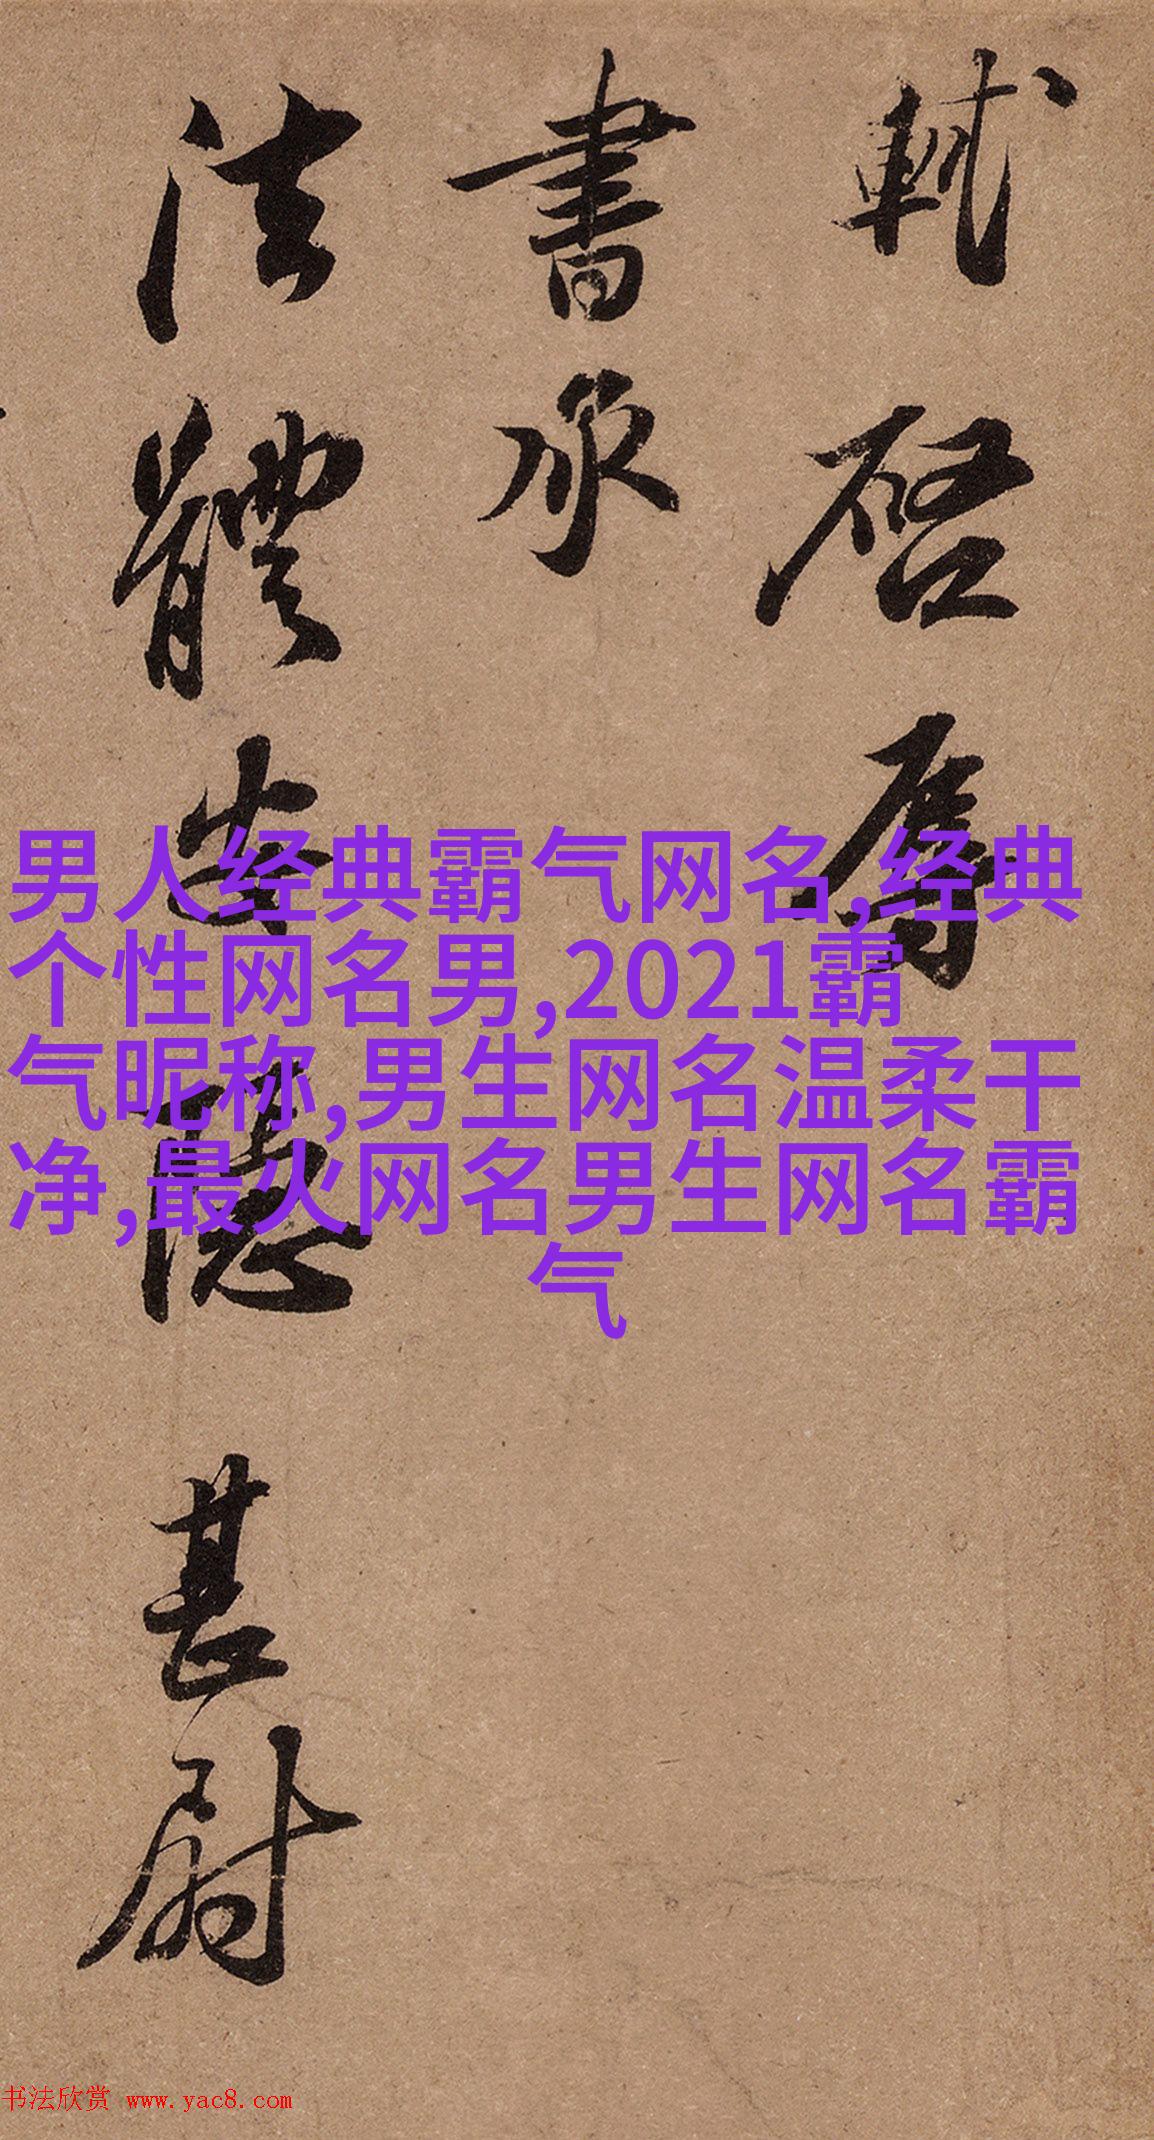 軾啓辱
書承
法體安隱甚慰
男人经典霸气网名,经典
个性网名男,2021霸
气昵称,男生网名温柔干
净,最火网名男生网名霸
气
书法欣赏 www.yac8.com